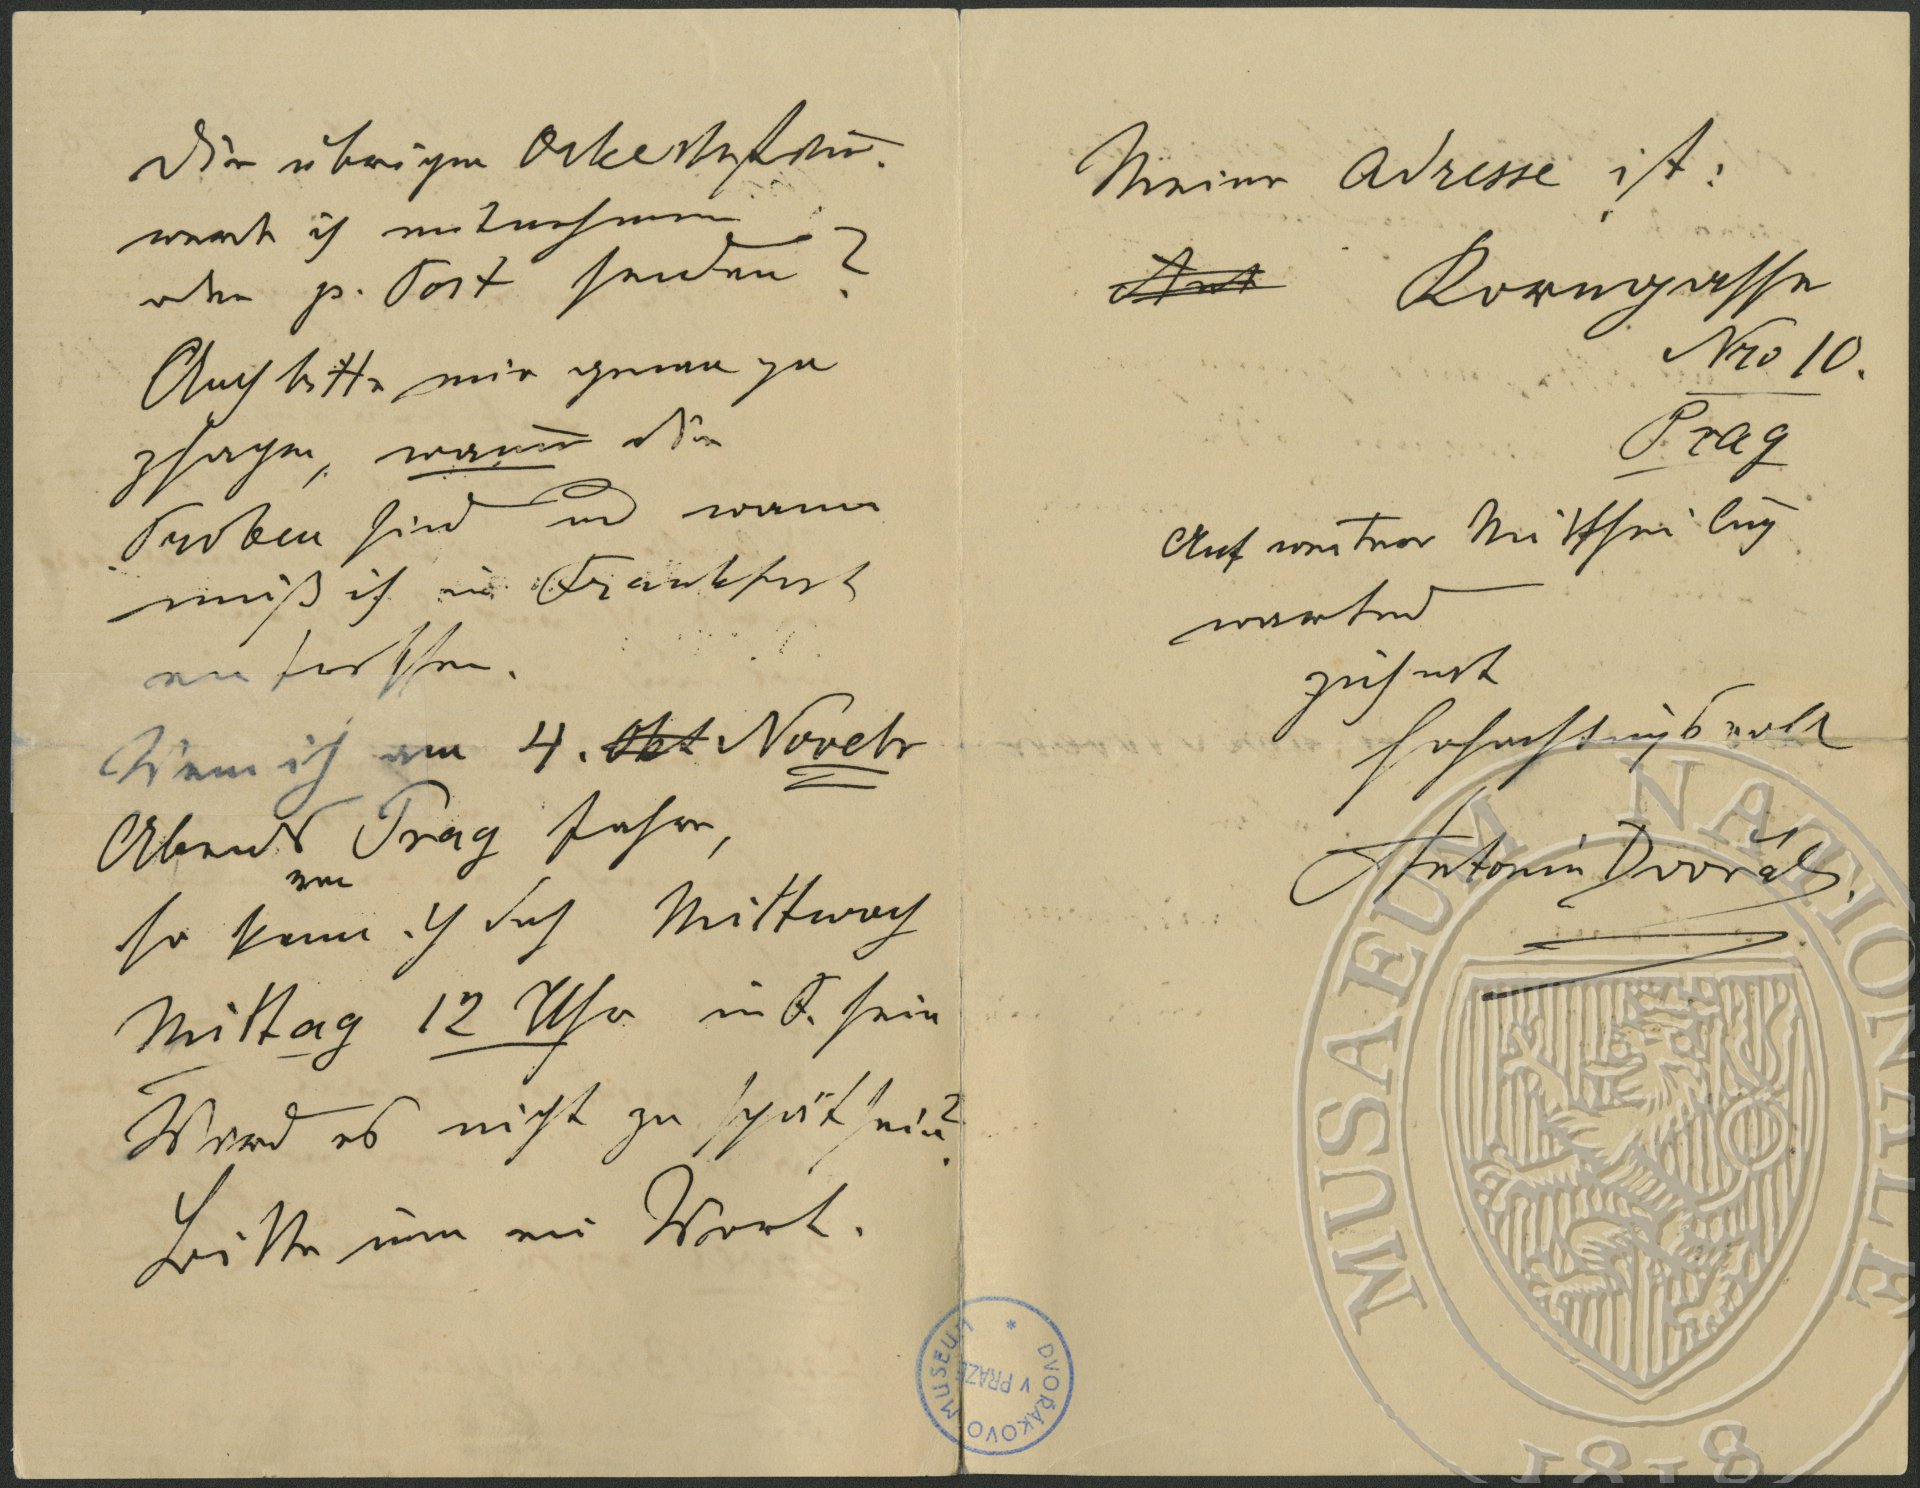 Die übrigen Orkesterstim̄.
werde ich mitnehmen
oder p. Post senden?
Auch bitte mir genau zu
sagen, wann die
Proben sind und wann
muß ich in Frankfurt
eintreffen.
Wenn ich am 4. Okt Novebr
Abends Prag fahre,
von
so kann ich doch Mittwoch
Mittag 12 Uhr in F. sein
Wird es nicht zu spät sein?
Bitte um ein Wort.
Meine Adresse ist:
Korngasse
Nro 10.
Prag
Auf weitere Mittheilung
wartend
zeichnet
hochachtungsvoll
Antonín Dvořák.
DVOŘÁKOVO MUSEUM
V PRAZE
MUSAEUM NATIONALE
1818